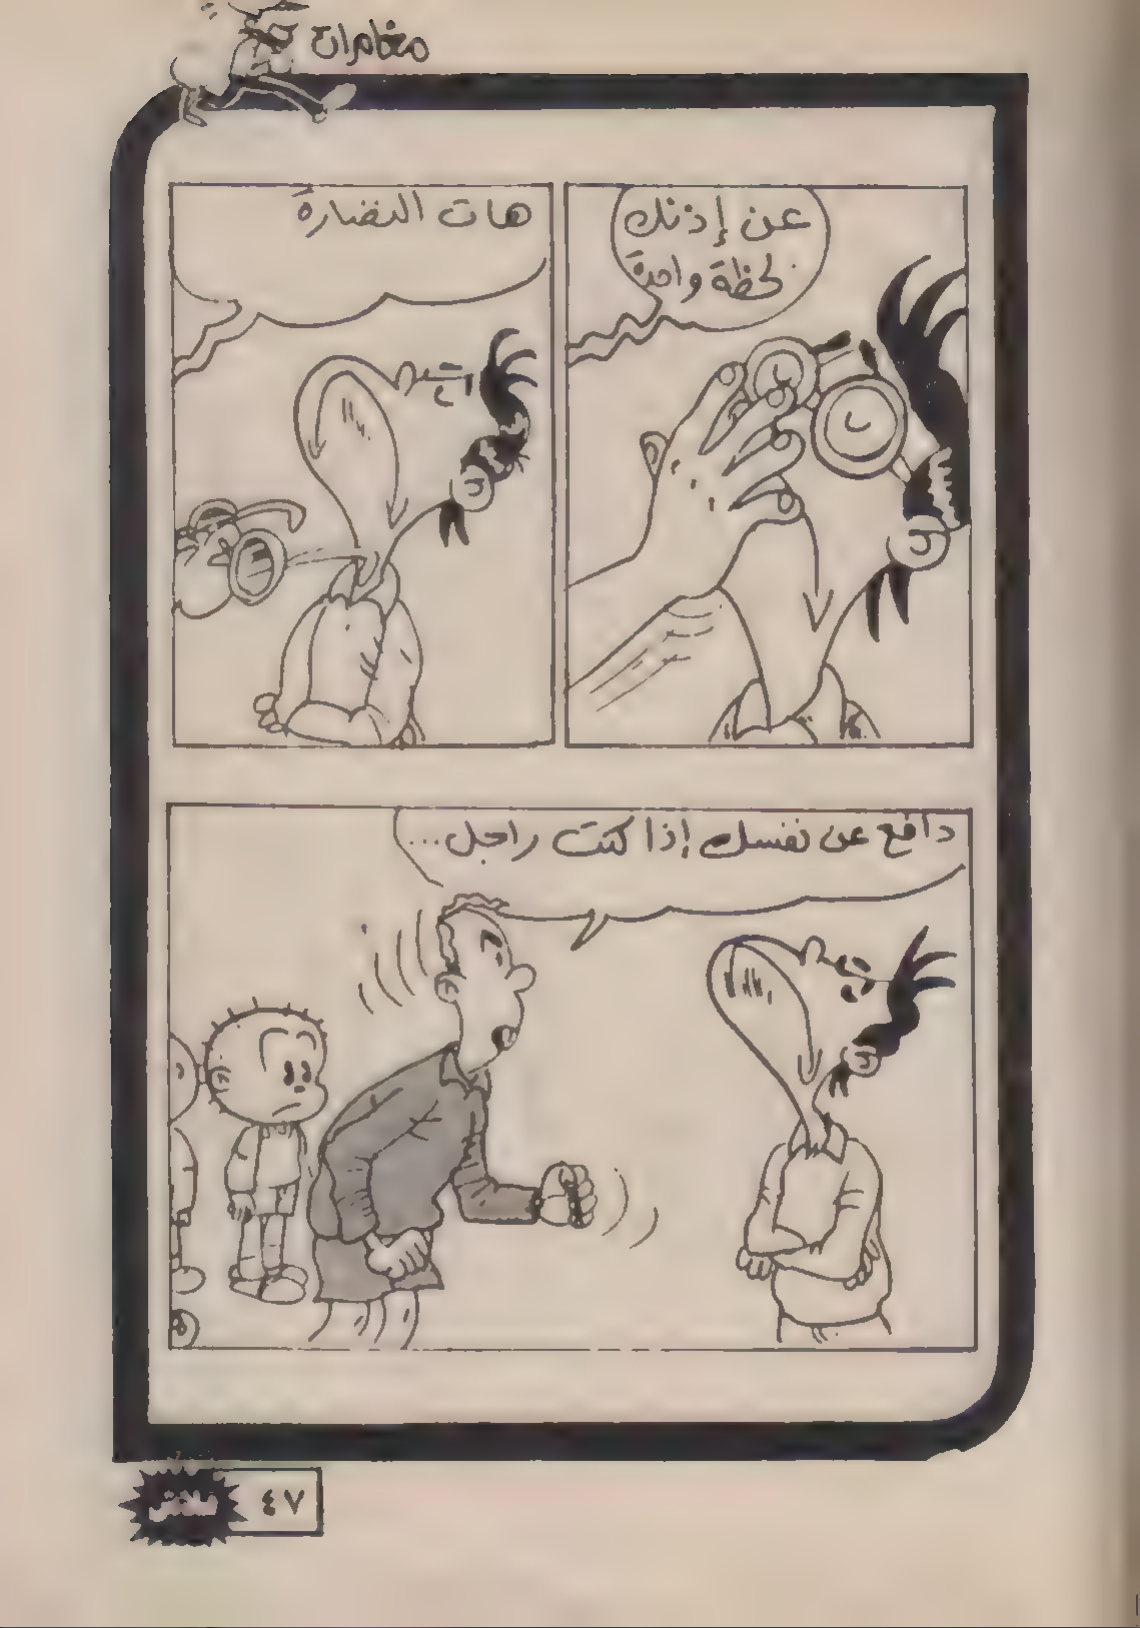 مغامرات
عن إذنك
لحظة واحدة
هات النضارة
دافع عن نفسك إذا كنت راجل...
٤٧